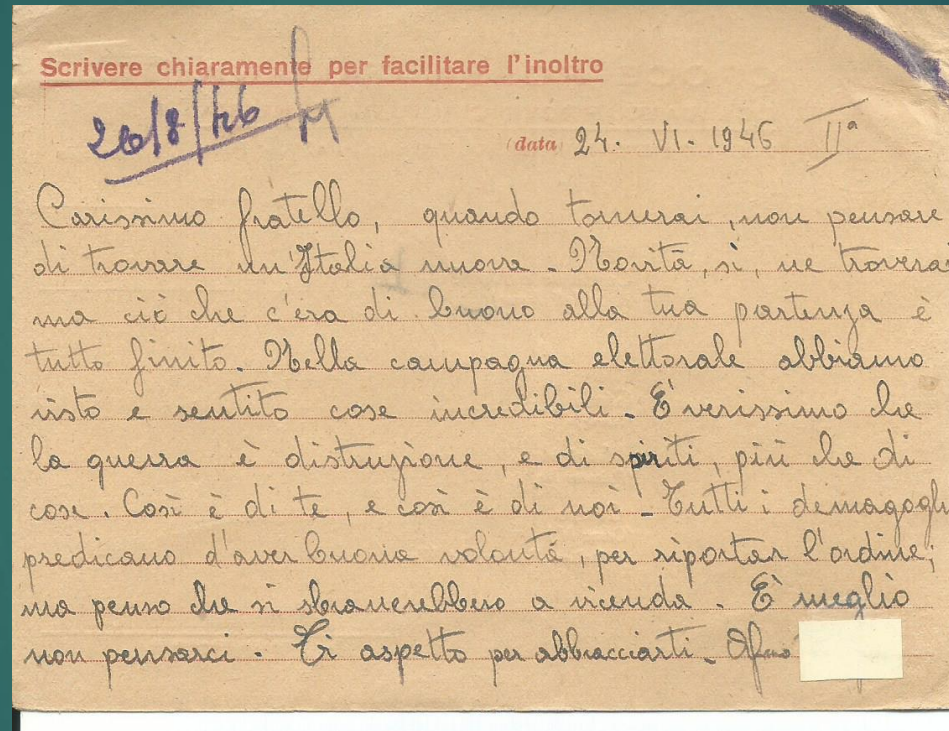 Scrivere chiaramente per facilitare l'inoltro
26/8/46
(data) 24. VI. 1946 IIª
Carissimo fratello, quando tornerai, non pensare
di trovare un'Italia nuova. Novità, sì, ne troverai
ma ciò che c'era di buono alla tua partenza è
tutto finito. Nella campagna elettorale abbiamo
visto e sentito cose incredibili. È verissimo che
la guerra è distruzione, e di spiriti, più che di
cose. Così è di te, e così è di noi. Tutti i demagoghi
predicano d'aver buona volontà, per riportar l'ordine;
ma penso che si sbranerebbero a vicenda. È meglio
non pensarci. Ti aspetto per abbracciarti.